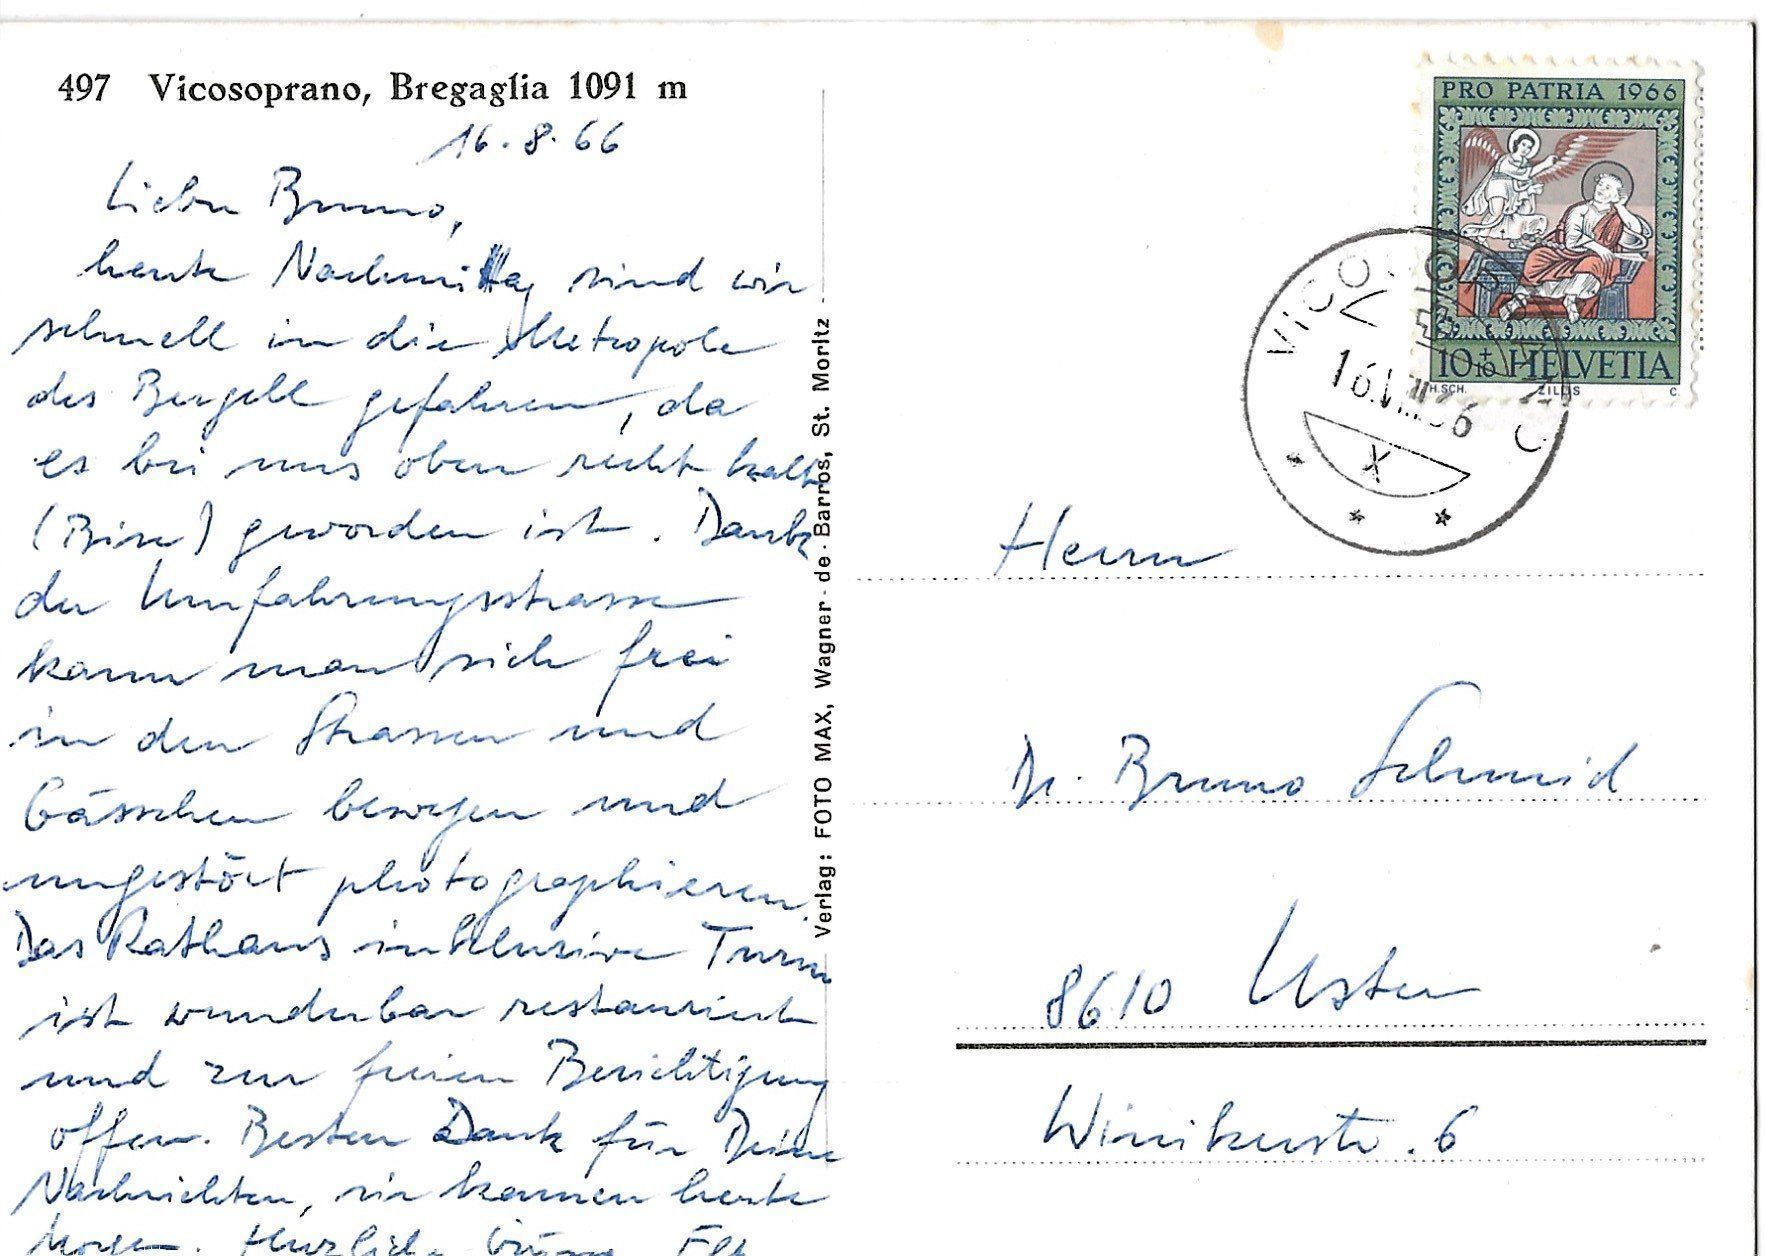 497 Vicosoprano, Bregaglia 1091 m
16.8.66
Lieber Bruno,
heute Nachmittag sind wir
schnell in die Metropole
des Bergell gefahren, da
es bei uns oben recht kalt
(Bise) geworden ist. Dank
der Umfahrungsstrasse
kann man sich frei
in den Strassen und
Gässchen bewegen und
ungestört photographieren.
Das Rathaus inklusive Turm
ist wunderbar restauriert
und zur freien Besichtigung
offen. Besten Dank für Deine
Nachrichten, sie kamen heute
Morgen. Herzliche Grüsse
Verlag: FOTO MAX, Wagner-de-Barros, St. Moritz
PRO PATRIA 1966
10+10 HELVETIA
H.SCH. ZILLIS C.
16.VIII.66
X
Herrn
Dr. Bruno Schmid
8610 Uster
Winikerstr. 6